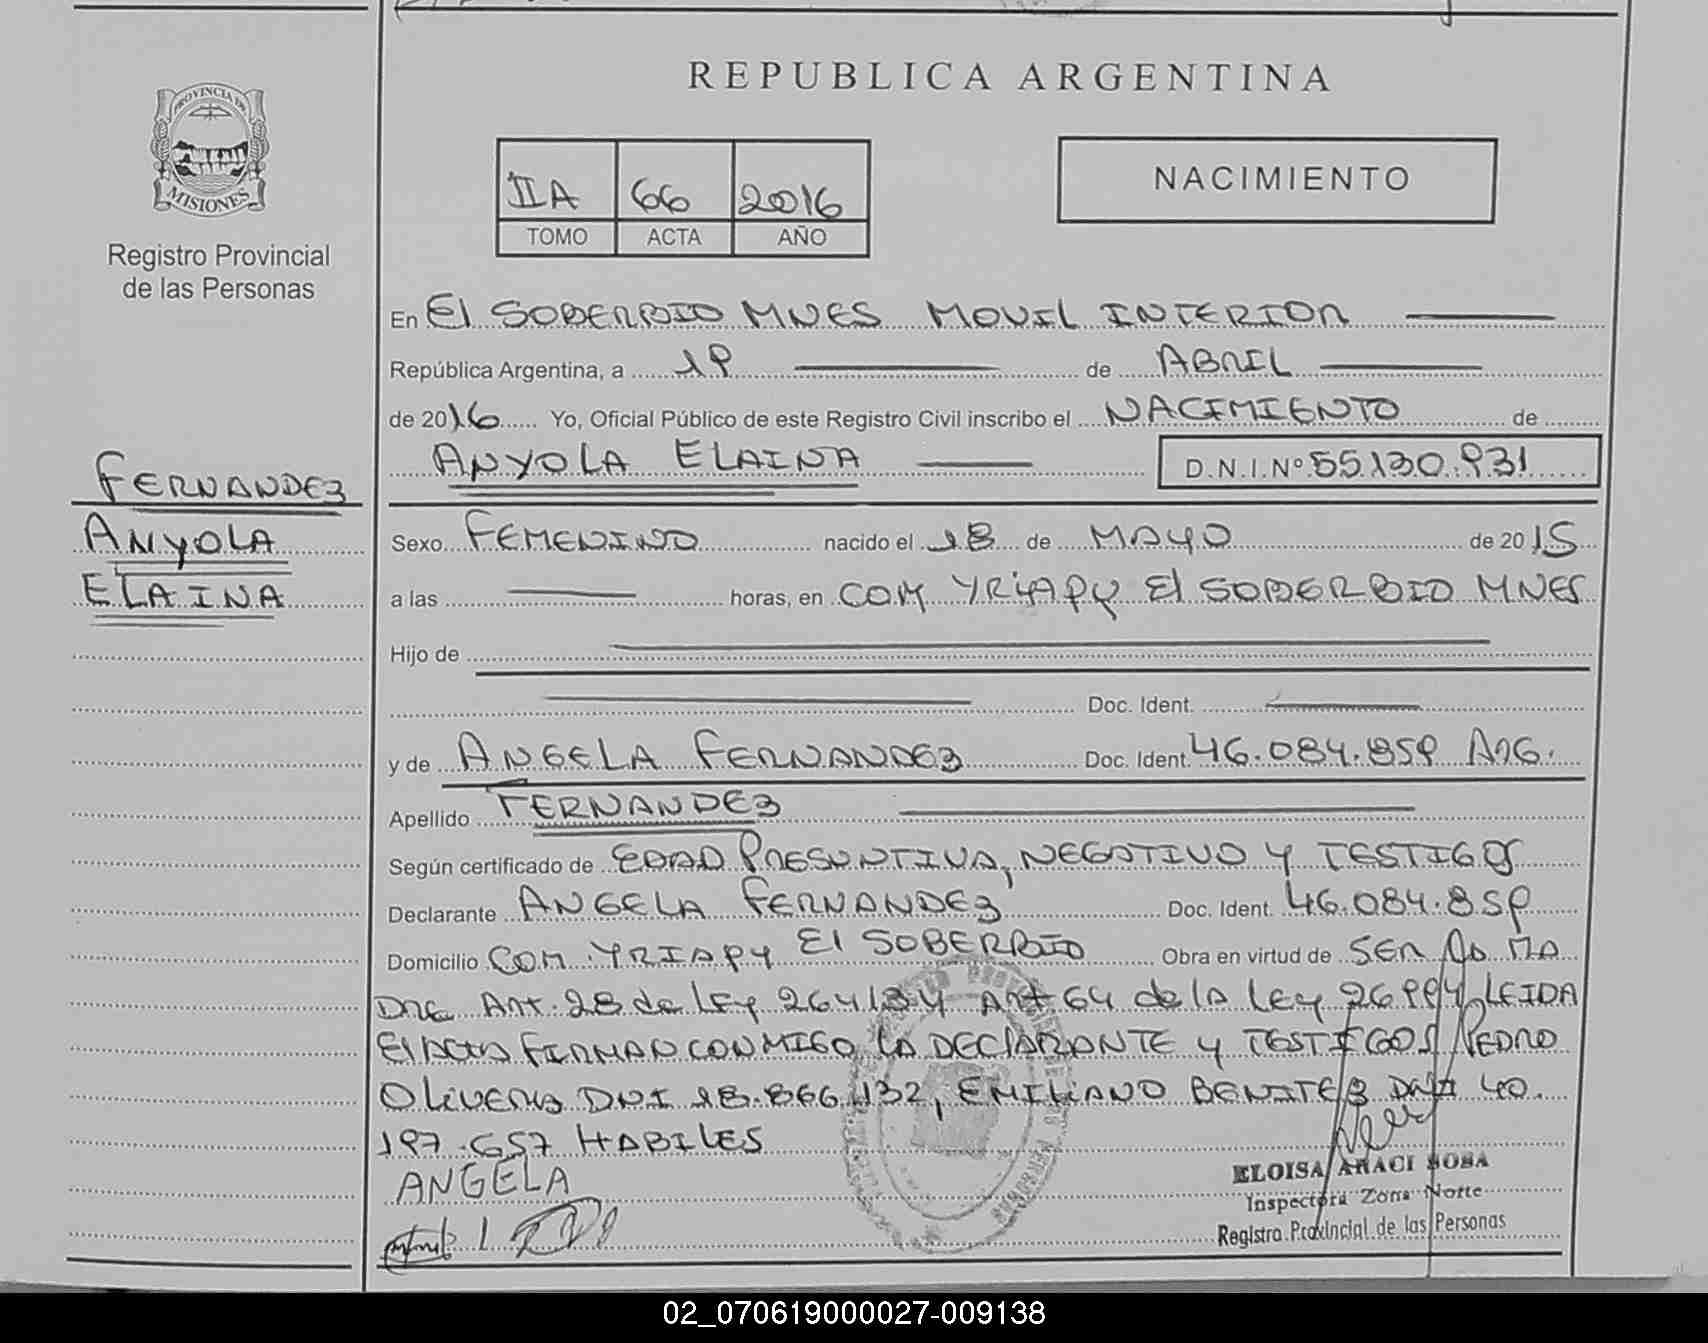 REPUBLICA ARGENTINA
PROVINCIA DE
MISIONES
Registro Provincial
de las Personas
IIA 66 2016
TOMO ACTA AÑO
NACIMIENTO
En El SOBERBIO MNES MOVIL INTERIOR
República Argentina, a 19 de ABRIL
de 2016 Yo, Oficial Público de este Registro Civil inscribo el NACIMIENTO de
ANYOLA ELAINA D.N.I.Nº 55.130.931
FERNANDEZ
ANYOLA
ELAINA
Sexo FEMENINO nacido el 18 de MAYO de 2015
a las horas, en COM YRIAPY El SOBERBIO MNES
Hijo de
Doc. Ident.
y de ANGELA FERNANDEZ Doc. Ident. 46.084.859 ARG.
Apellido FERNANDEZ
Según certificado de EDAD PRESUNTIVA, NEGATIVO Y TESTIGOS
Declarante ANGELA FERNANDEZ Doc. Ident. 46.084.859
Domicilio COM. YRIAPY El SOBERBIO Obra en virtud de SER LA MA
DRE ART. 28 de Ley 26413 y ART 64 de la Ley 26.994 LEIDA
El ACTA FIRMAN CONMIGO LA DECLARANTE y TESTIGOS PEDRO
OLIVERA DNI 18.866.132, EMILIANO BENITEZ DNI 40.
197.657 HABILES
ANGELA
ELOISA ARACI SOSA
Inspectora Zona Norte
Registro Provincial de las Personas
02_070619000027-009138